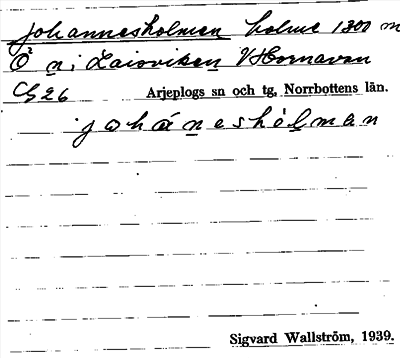 Johannesholmen holme 1300 m
Ö n i Laisviken V Hornavan
Cg 26 Arjeplogs sn och tg, Norrbottens län.
joháneshòlmen
Sigvard Wallström, 1939.